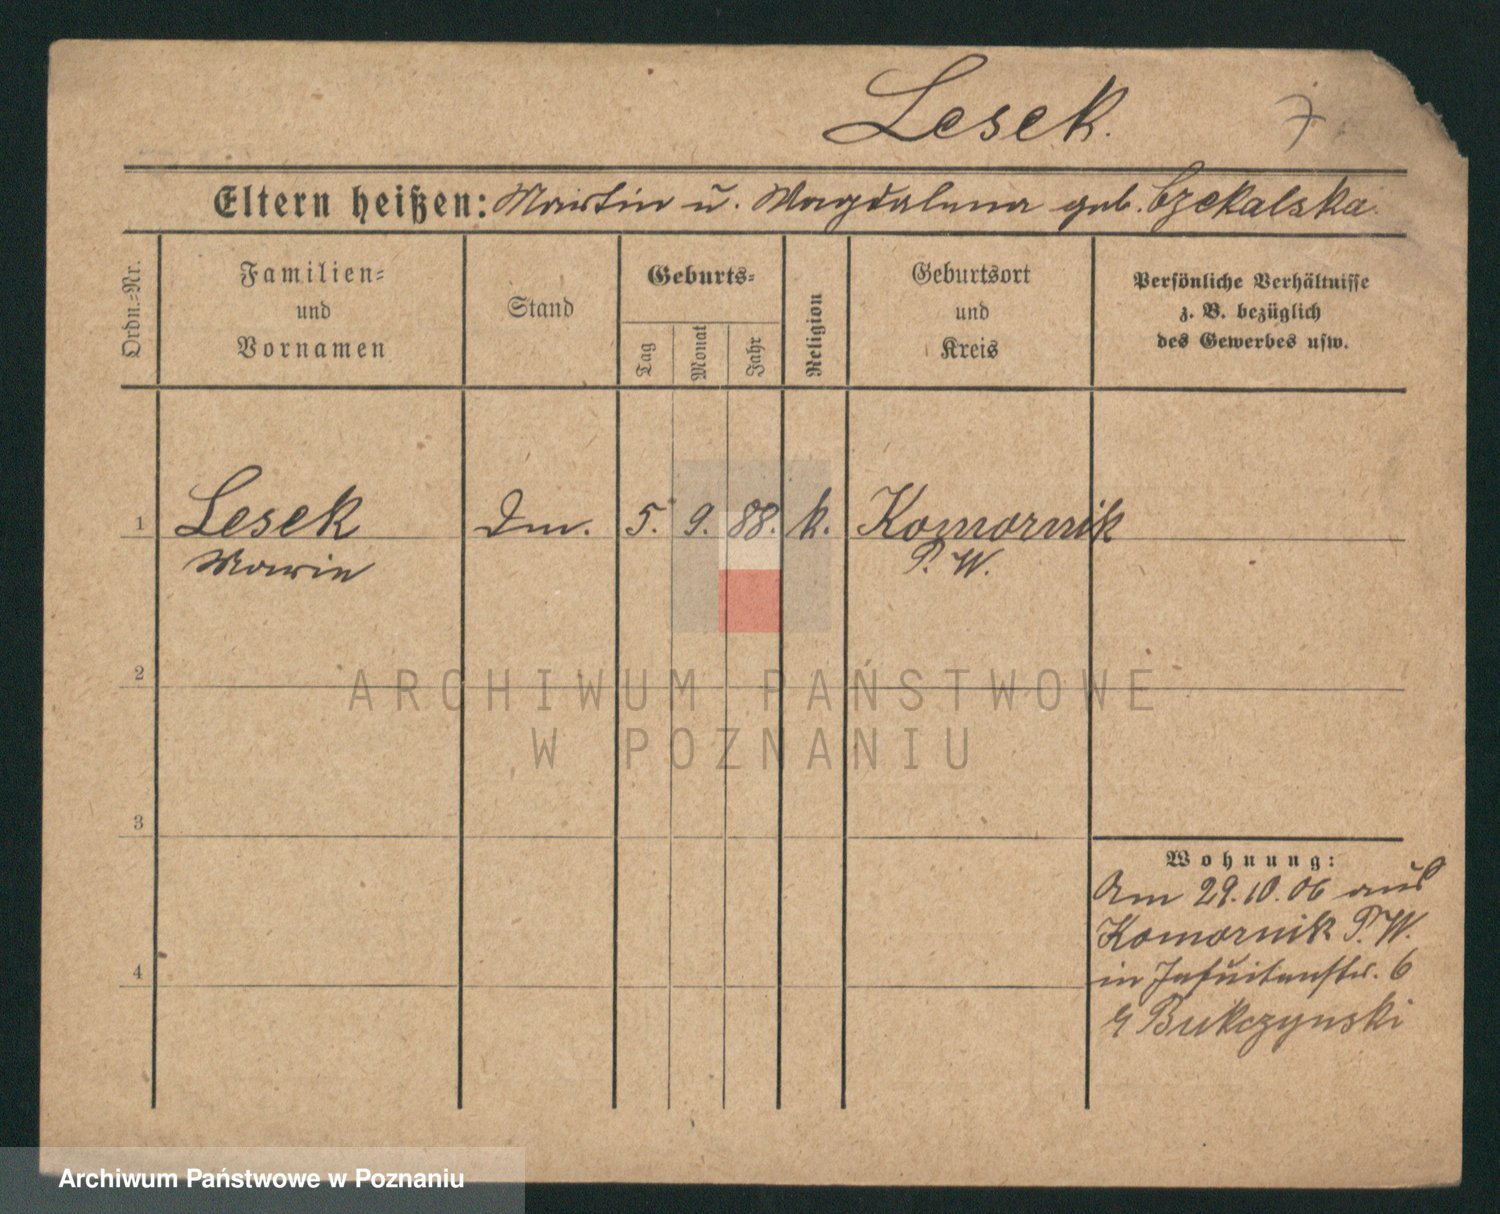 Lesek.
7
Eltern heißen: Martin u. Magdalena geb. Czekalska.
Ordn.=Nr.
Familien=
und
Vornamen
Stand
Geburts=
Tag
Monat
Jahr
Religion
Geburtsort
und
Kreis
Persönliche Verhältnisse
z. B. bezüglich
des Gewerbes usw.
1 Lesek Dm. 5. 9. 88. k. Komornik
Marie P. W.
2
ARCHIWUM PAŃSTWOWE
W POZNANIU
3
Wohnung:
Am 29.10.06 aus
Komornik P. W.
4
in Jesuitenstr. 6
Bukczynski
Archiwum Państwowe w Poznaniu